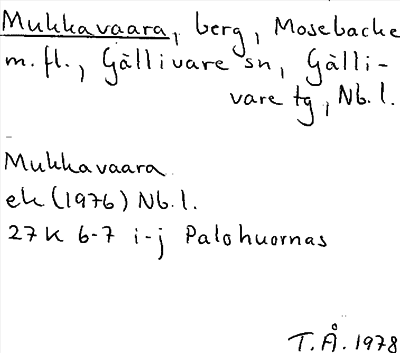 Mukkavaara, berg, Mosebacke
m.fl., Gällivare sn, Gälli-
vare tg, Nb.l.
Mukkavaara
ek (1976) Nb.l.
27K 6-7 i-j Palohuornas
T.Å. 1978